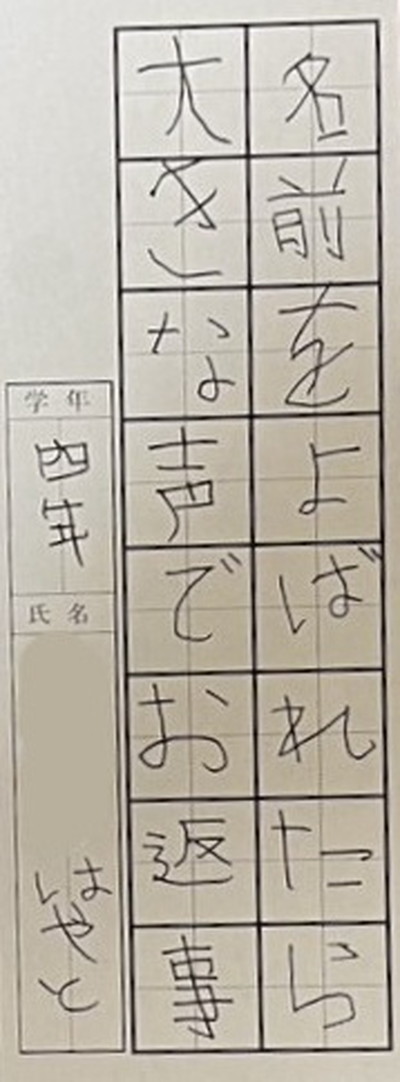 名前をよばれたら
大きな声でお返事
学年
四年
氏名
はやと